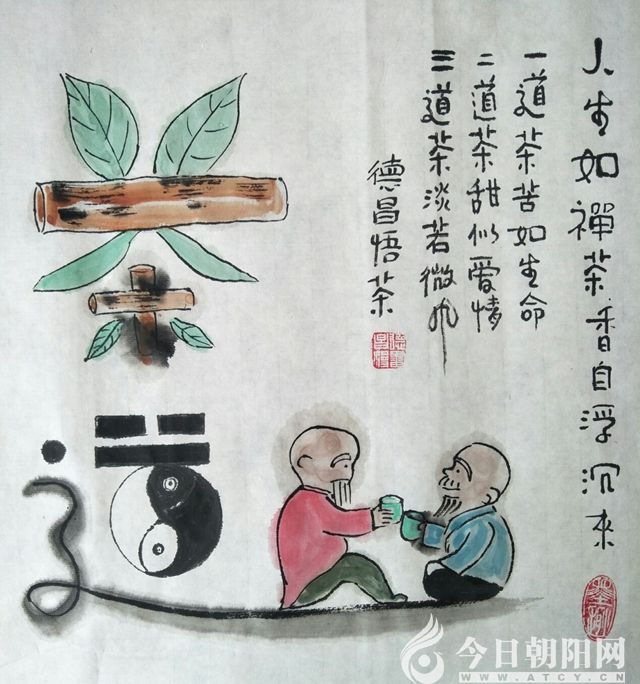 人生如禪茶香自浮沉来
一道茶苦如生命
二道茶甜似爱情
三道茶淡若微风
德昌悟茶
茶
今日朝阳网
WWW.ATCY.CN